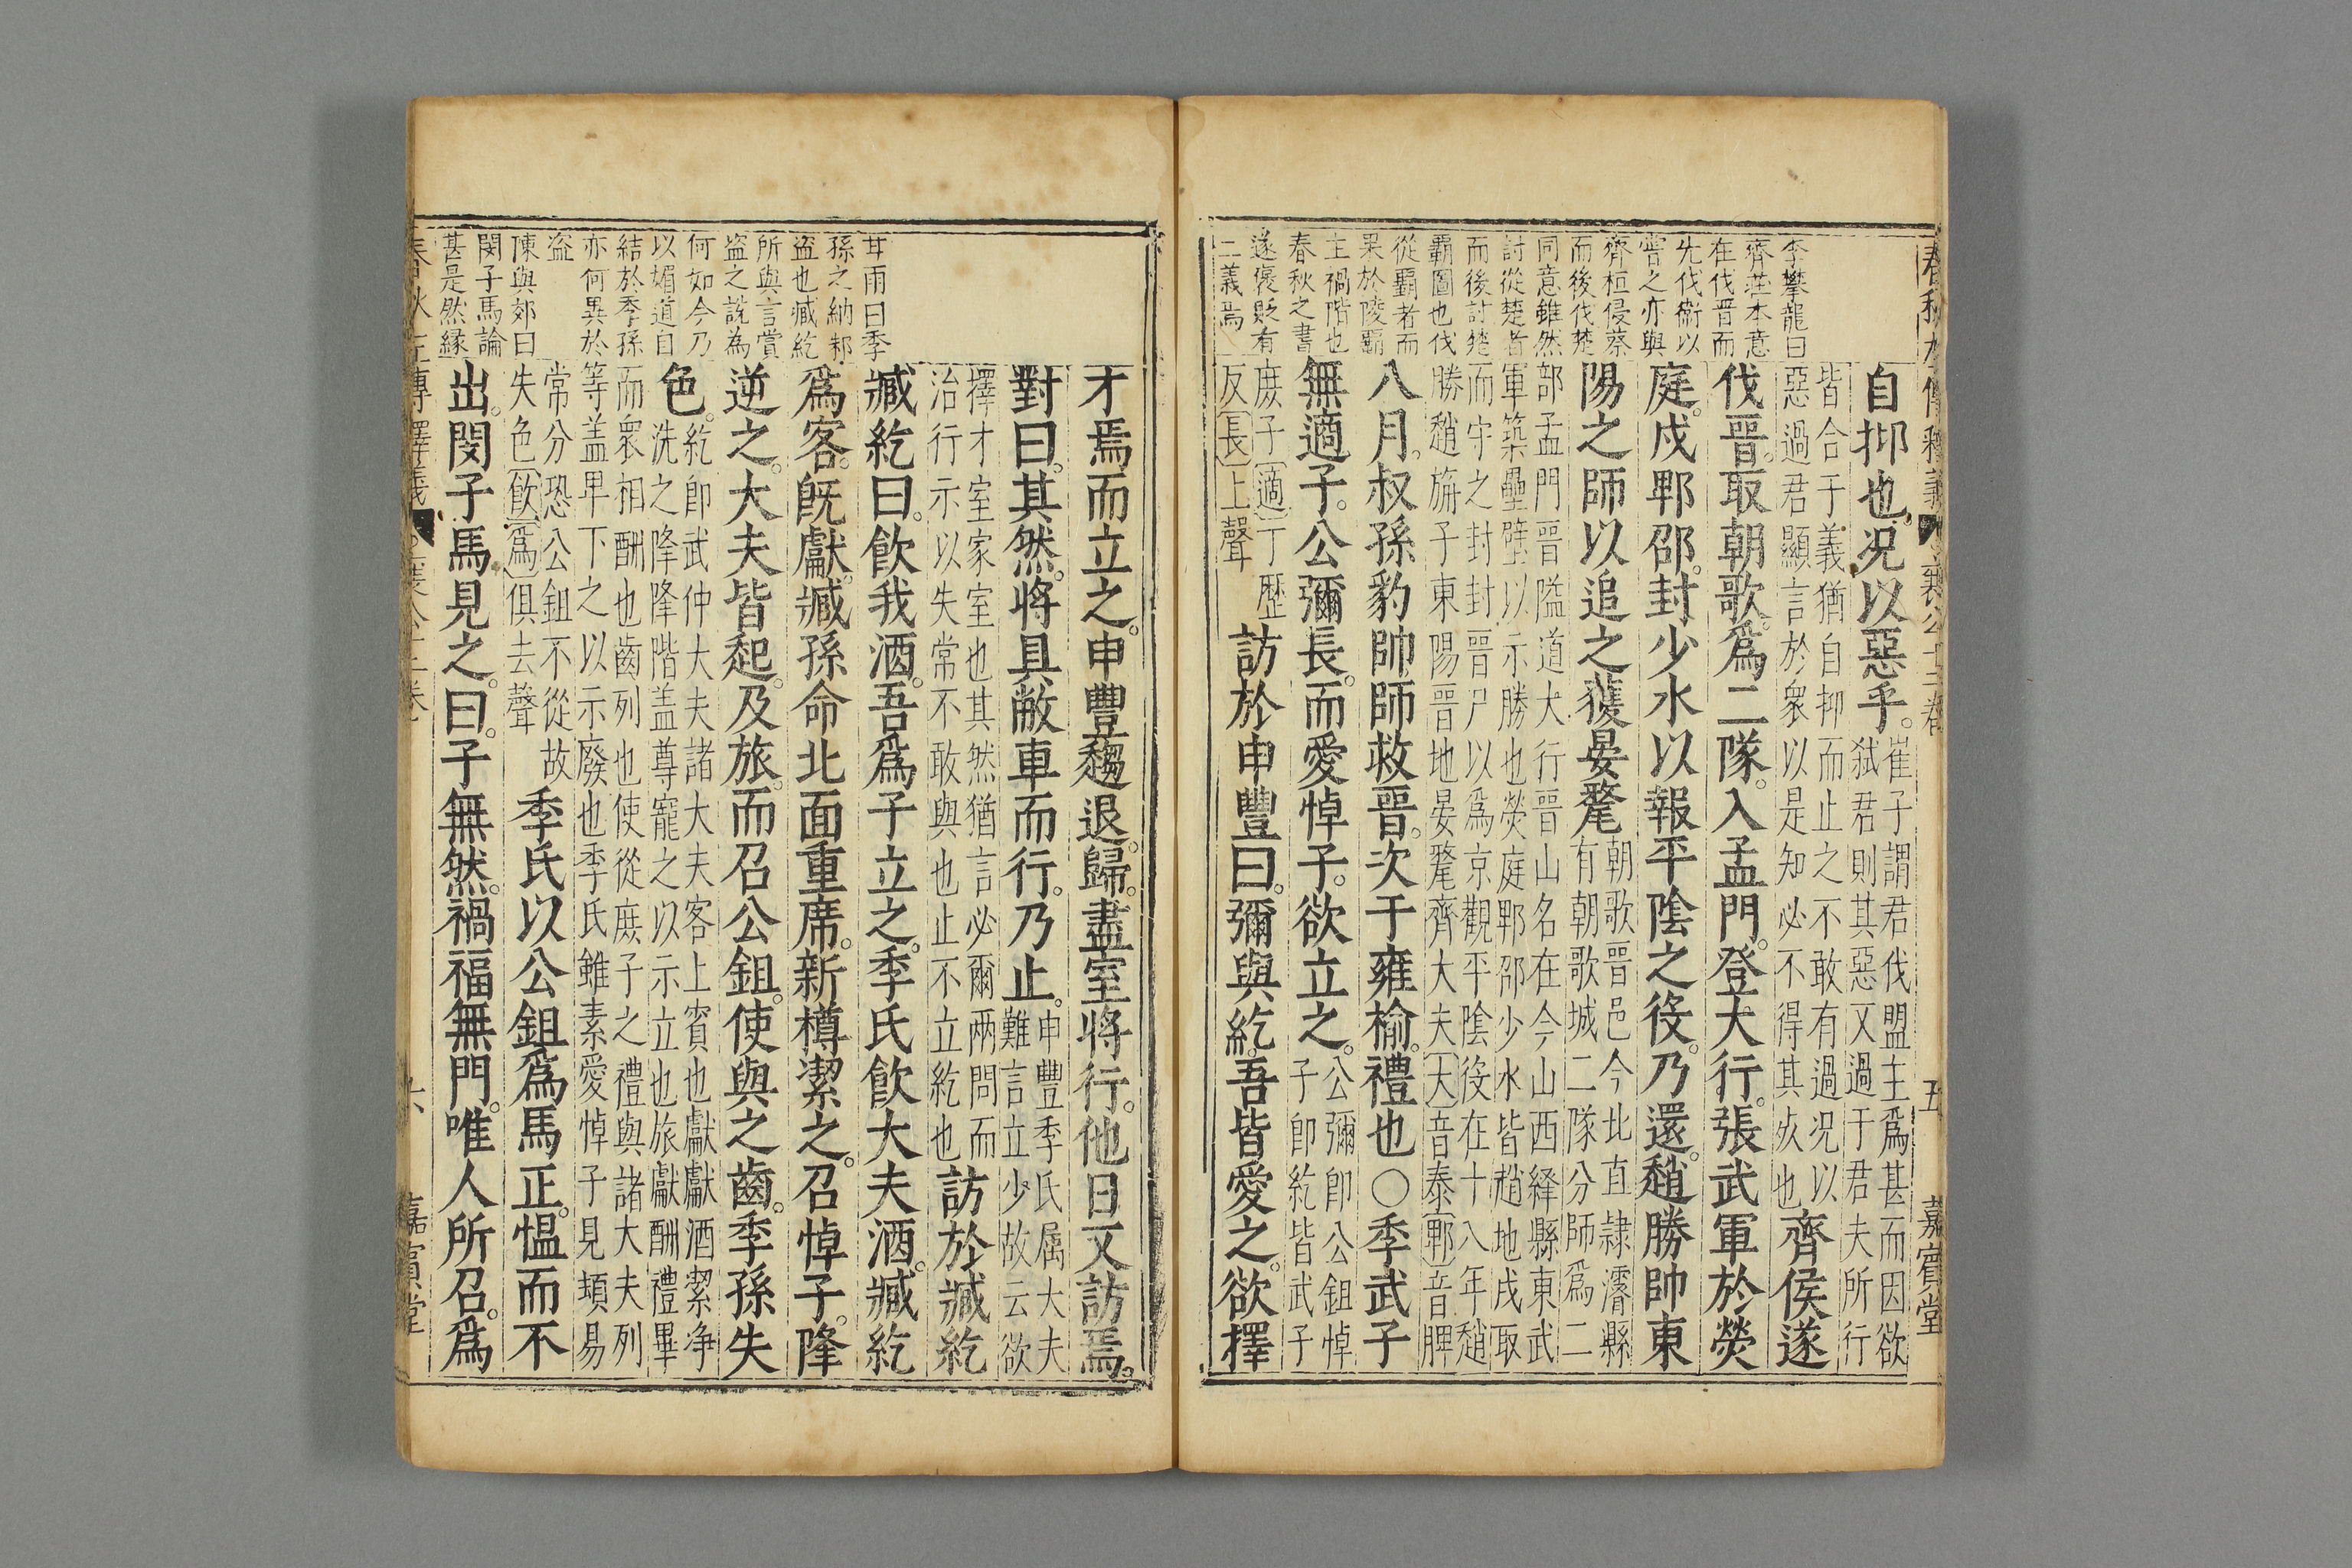 李攀龍曰
齊莊本意
在伐晉而
先伐衛以
嘗之亦與
齊桓侵蔡
而後伐楚
同意雖然
討從楚者
而後討楚
霸圖也伐
從霸者而
果於陵霸
主禍階也
春秋之書
遂褒貶有
二義焉
自抑也況以惡乎
崔子謂君伐盟主爲甚而因欲
弑君則其惡又過于君夫所行
皆合于義猶自抑而止之不敢有過況以
惡過君顯言於衆以是知必不得其死也
齊侯遂
伐晉取朝歌爲二隊入孟門登大行張武軍於熒
庭戍郫邵封少水以報平陰之役乃還趙勝帥東
陽之師以追之獲晏氂
朝歌晉邑今北直隷濬縣
有朝歌城二隊分師爲二
部孟門晉隘道大行晉山名在今山西絳縣東武
軍築壘壁以示勝也熒庭郫邵少水皆趙地戍取
而守之封封晉尸以爲京觀平陰役在十八年趙
勝趙旃子東陽晉地晏氂齊大夫大音泰郫音脾
八月叔孫豹帥師救晉次于雍榆禮也○季武子
無適子公彌長而愛悼子欲立之
公彌即公鉏悼
子即紇皆武子
庶子適丁歷
反長上聲
訪於申豐曰彌與紇吾皆愛之欲擇
春秋左傳釋義
襄公十二卷
五
嘉賓堂
甘雨曰季
孫之納邾
盜也臧紇
所與言賞
盜之說為
何如今乃
以媚道自
結於季孫
亦何異於
盜
陳與郊曰
閔子馬論
甚是然緣
才焉而立之申豐趨退歸盡室將行他日又訪焉
對曰其然將具敝車而行乃止
申豐季氏屬大夫
難言立少故云欲
擇才室家室也其然猶言必爾兩問而
治行示以失常不敢與也止不立紇也
訪於臧紇
臧紇曰飲我酒吾爲子立之季氏飲大夫酒臧紇
爲客旣獻臧孫命北面重席新樽潔之召悼子降
逆之大夫皆起及旅而召公鉏使與之齒季孫失
色
紇即武仲大夫諸大夫客上賓也獻獻酒潔净
洗之降降階盖尊寵之以示立也旅獻酬禮畢
而衆相酬也齒列也使從庶子之禮與諸大夫列
等盖早下之以示廢也季氏雖素愛悼子見頓易
常分恐公鉏不從故
失色飲爲俱去聲
季氏以公鉏爲馬正慍而不
出閔子馬見之曰子無然禍福無門唯人所召爲
六
嘉賓堂